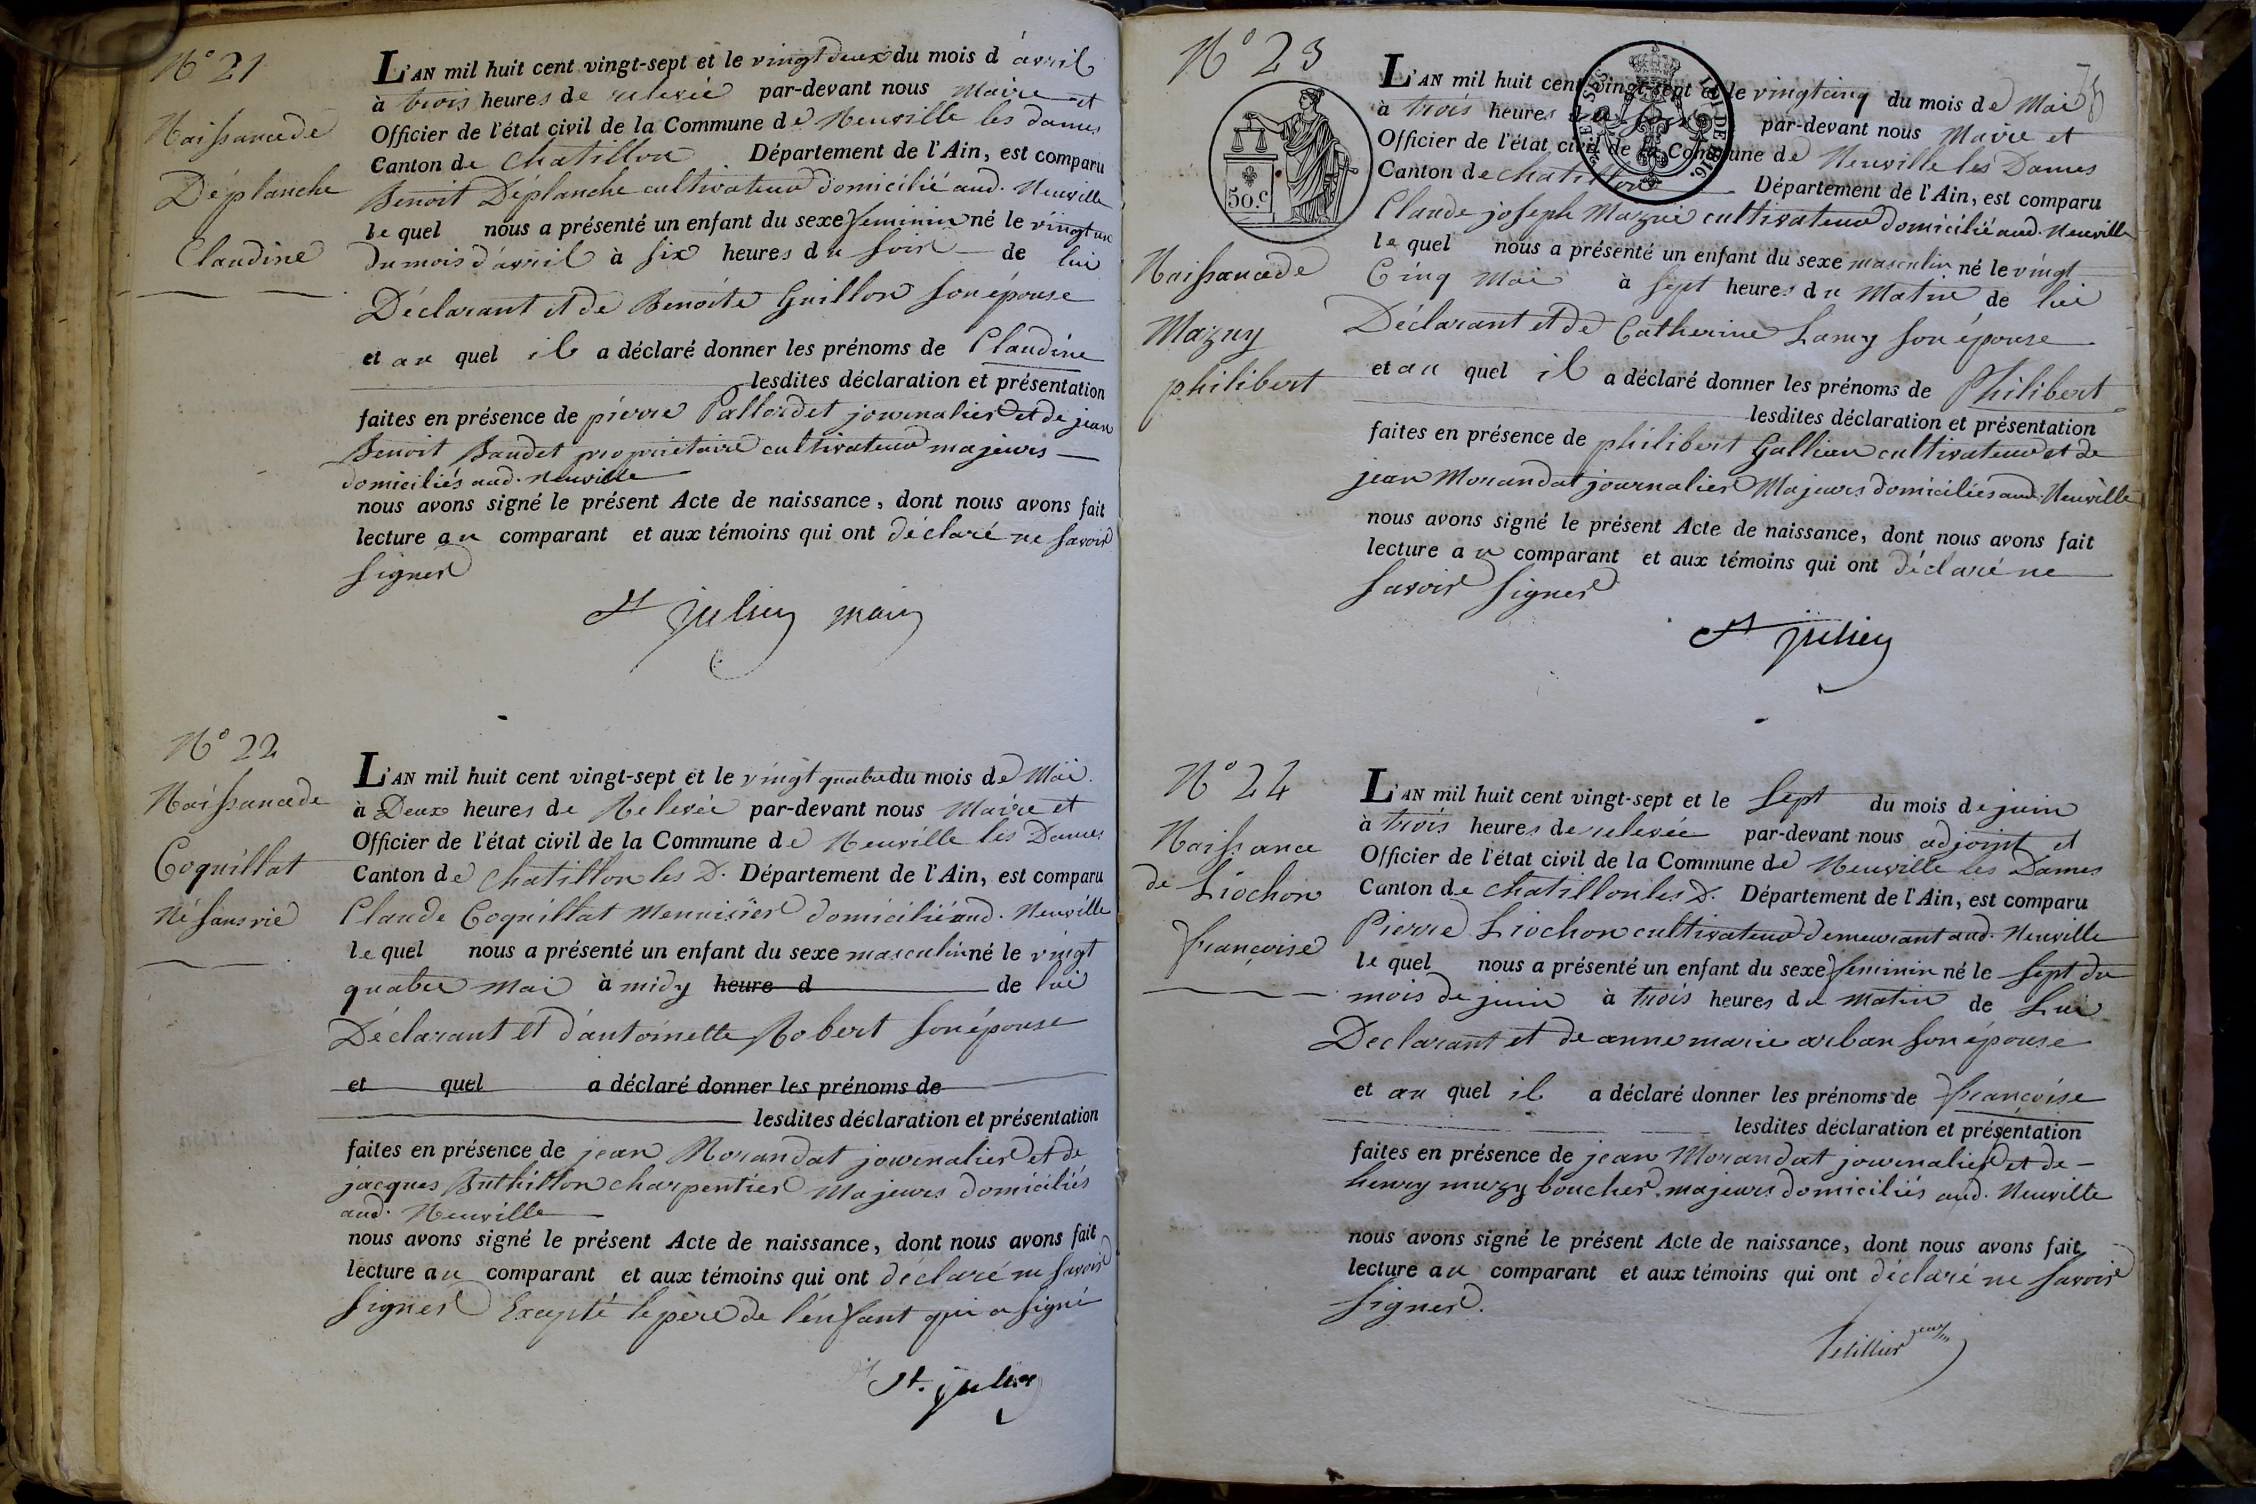 N° 21
Naissance de
Déplanche
Claudine
L'AN mil huit cent vingt-sept et le vingt deux du mois d'avril
à trois heures de relevée par-devant nous Maire et
Officier de l'état civil de la Commune de Neuville les dames
Canton de Chatillon Département de l'Ain, est comparu
Benoit Déplanche cultivateur domicilié aud. Neuville
lequel nous a présenté un enfant du sexe feminin né le vingt un
du mois d'avril à six heures du soir de lui
Déclarant et de Benoite Guillon son épouse
et au quel il a déclaré donner les prénoms de Claudine
lesdites déclaration et présentation
faites en présence de pierre Pallordet journalier et de jean
Benoit Baudet proprietaire cultivateur majeurs
domiciliés aud. Neuville
nous avons signé le présent Acte de naissance, dont nous avons fait
lecture au comparant et aux témoins qui ont déclaré ne savoir
signer
St julien maire
N° 22
Naissance de
Coquillat
Né sans vie
L'AN mil huit cent vingt-sept et le vingt quatre du mois de Mai
à Deux heures de Relevée par-devant nous Maire et
Officier de l'état civil de la Commune de Neuville les Dames
Canton de Chatillon les D. Département de l'Ain, est comparu
Claude Coquillat Menuisier domicilié aud. Neuville
lequel nous a présenté un enfant du sexe masculin né le vingt
quatre mai à midy heure d de lui
Déclarant et d'antoinette Robert son épouse
et quel a déclaré donner les prénoms de
lesdites déclaration et présentation
faites en présence de jean Morandat journalier et de
jacques Buthillon charpentier Majeurs domiciliés
aud. Neuville
nous avons signé le présent Acte de naissance, dont nous avons fait
lecture au comparant et aux témoins qui ont déclaré ne savoir
signer Excepté le père de l'enfant qui a signé
St. julien
N° 23
50.c
Naissance de
Mazuy
philibert
L'AN mil huit cent vingt-sept et le vingt cinq du mois de Mai
à trois heures du soir par-devant nous Maire et
Officier de l'état civil de la Commune de Neuville les Dames
Canton de Chatillon Département de l'Ain, est comparu
Claude joseph Mazui cultivateur domicilié aud. Neuville
lequel nous a présenté un enfant du sexe masculin né le vingt
Cinq Mai à sept heures du Matin de lui
Déclarant et de Catherine Lamy son épouse
et au quel il a déclaré donner les prénoms de Philibert
lesdites déclaration et présentation
faites en présence de philibert Gallien cultivateur et de
jean Morandat journalier Majeurs domiciliés aud. Neuville
nous avons signé le présent Acte de naissance, dont nous avons fait
lecture au comparant et aux témoins qui ont déclaré ne
savoir signer
St julien
N° 24
Naissance
de Liochon
françoise
L'AN mil huit cent vingt-sept et le sept du mois de juin
à trois heures de relevée par-devant nous adjoint et
Officier de l'état civil de la Commune de Neuville les Dames
Canton de Chatillon les D. Département de l'Ain, est comparu
Pierre Liochon cultivateur demeurant aud. Neuville
lequel nous a présenté un enfant du sexe feminin né le sept du
mois de juin à trois heures du matin de Lui
Declarant et de anne marie arban son épouse
et au quel il a déclaré donner les prénoms de françoise
lesdites déclaration et présentation
faites en présence de jean Morandat journalier et de
henry muzy boucher majeurs domiciliés aud. Neuville
nous avons signé le présent Acte de naissance, dont nous avons fait
lecture au comparant et aux témoins qui ont déclaré ne savoir
signer.